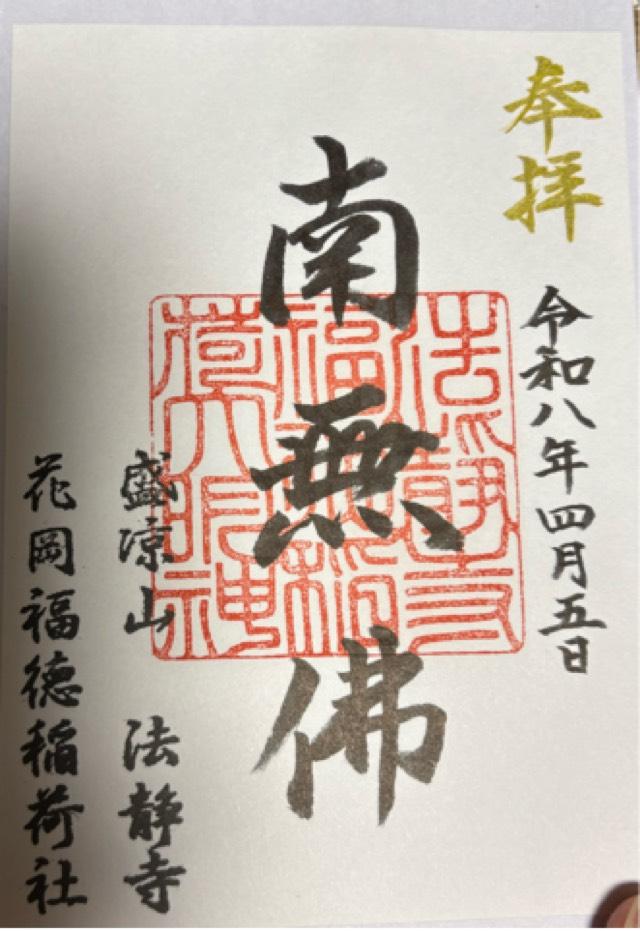 奉拝
令和八年四月五日
南無佛
法静寺
福徳稲
荷大明神
盛凉山 法静寺
花岡福徳稲荷社